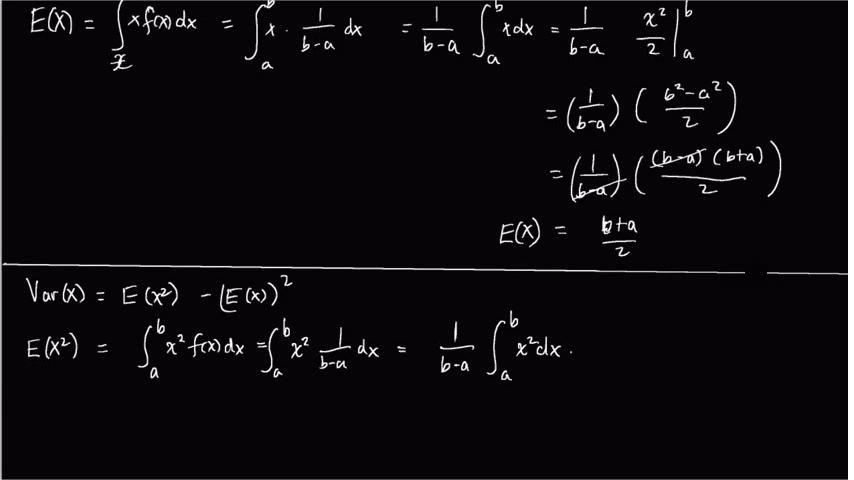 E(X) = ∫_𝒳 x f(x) dx = ∫_a^b x · 1/(b-a) dx = 1/(b-a) ∫_a^b x dx = 1/(b-a) x²/2 |_a^b
= (1/(b-a)) ( (b²-a²)/2 )
= (1/(b-a)) ( (b-a)(b+a)/2 )
E(X) = (b+a)/2
Var(X) = E(X²) - (E(X))²
E(X²) = ∫_a^b x² f(x) dx = ∫_a^b x² 1/(b-a) dx = 1/(b-a) ∫_a^b x² dx .